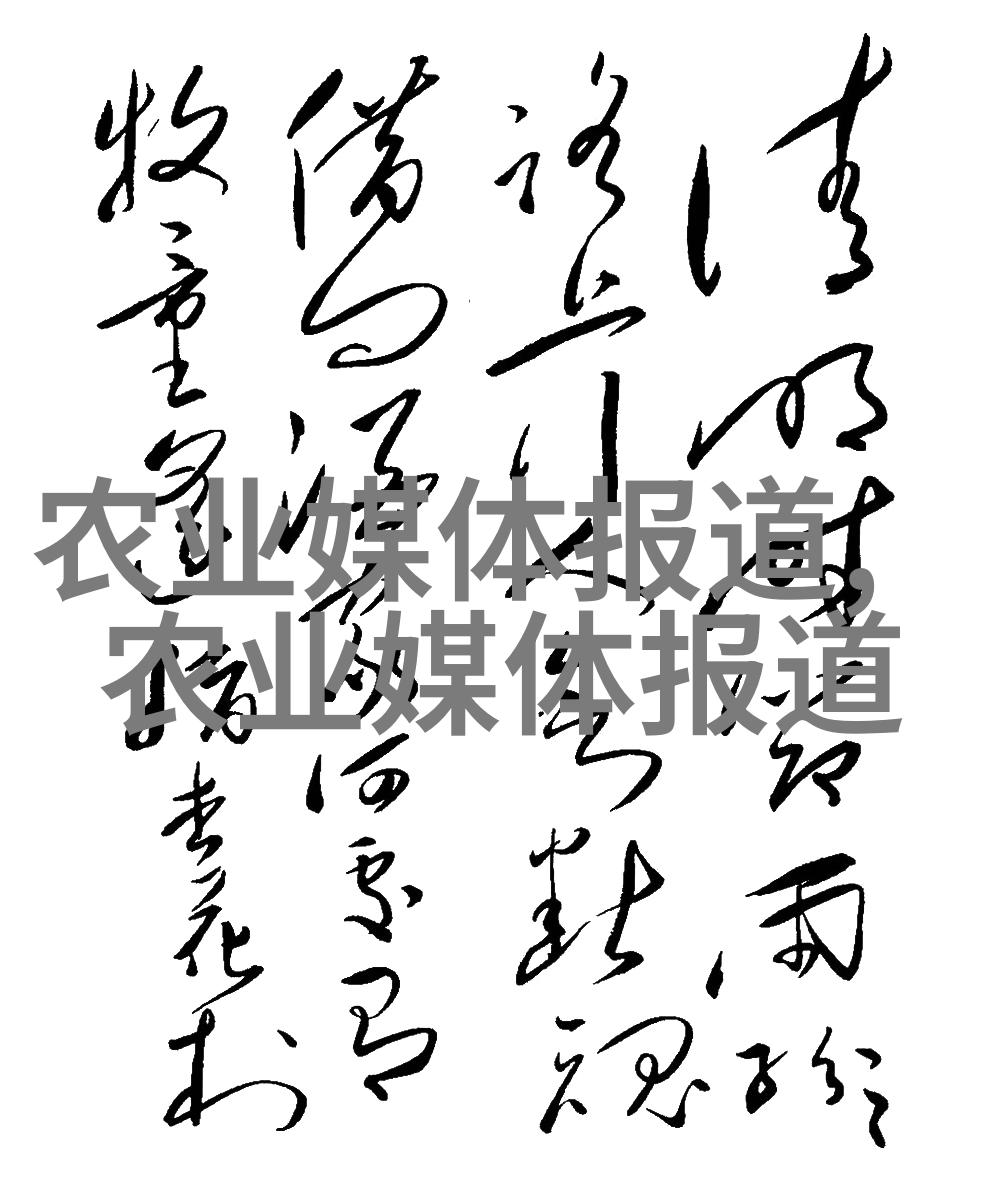 清明時節雨紛紛
路上行人欲斷魂
借問酒家何處有
牧童遥指杏花村
农业媒体报道,
农业媒体报道